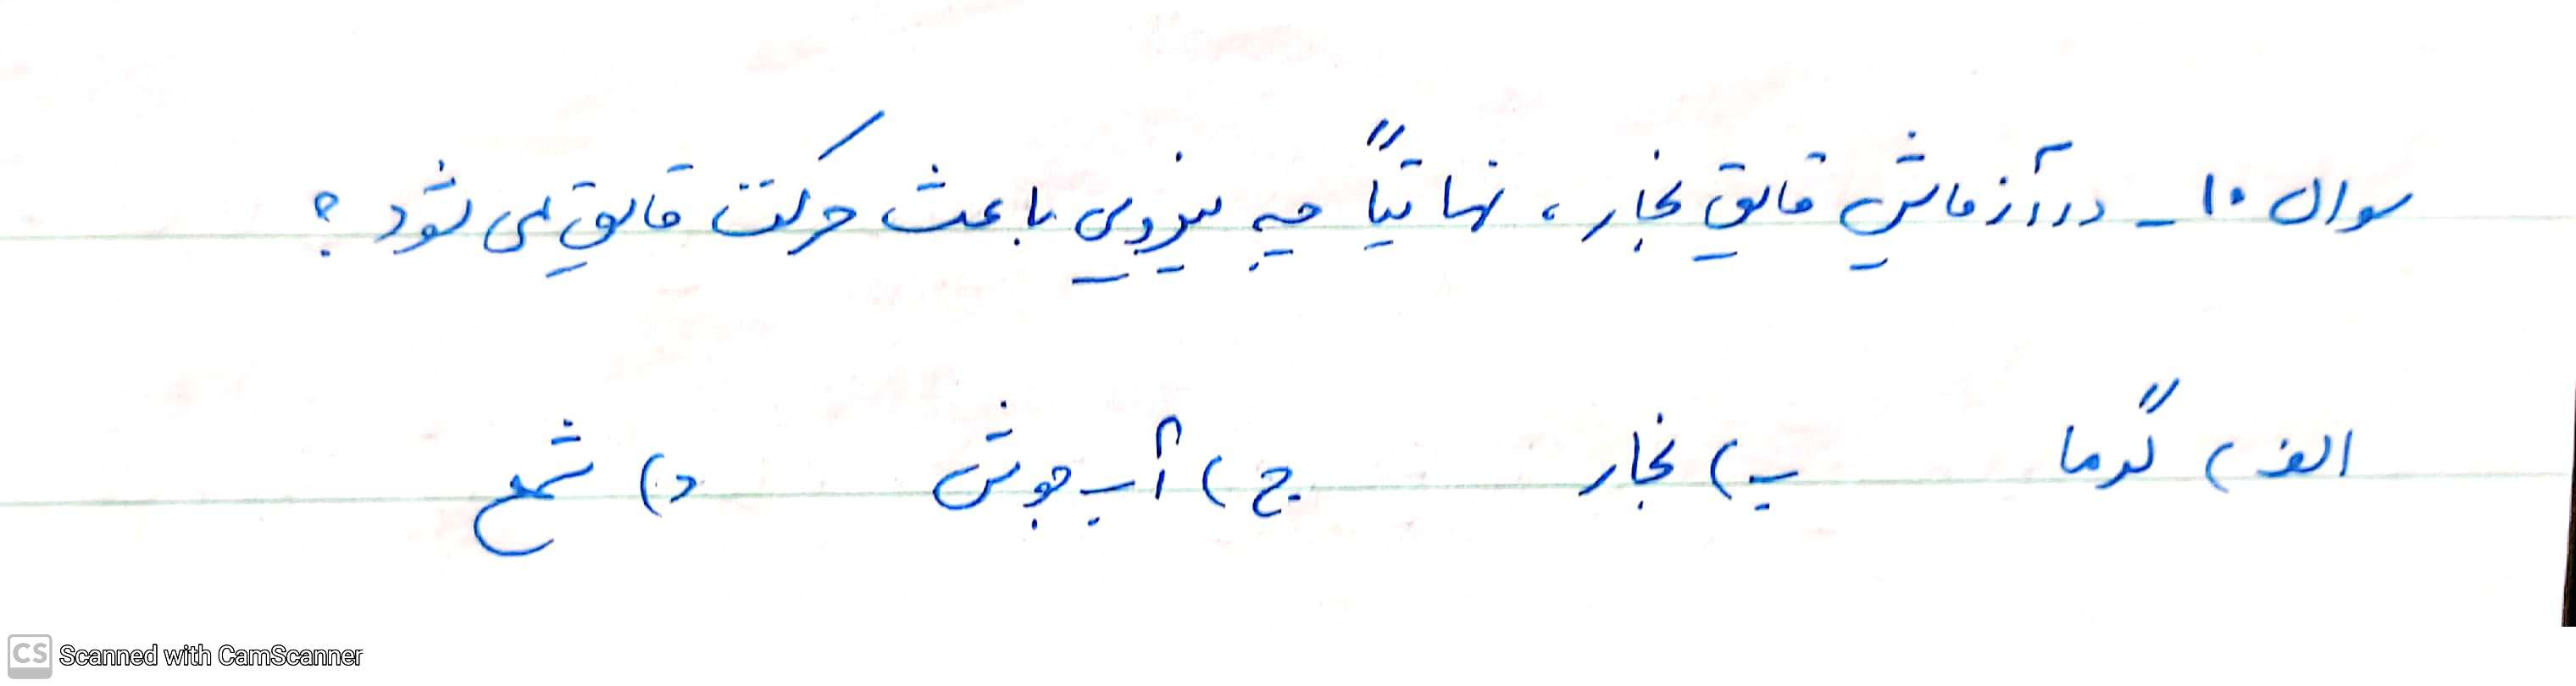 سوال ۱۰ـ در آزمایش قایق بخار، نهایتاً چه نیرویی باعث حرکت قایق می شود؟
الف) گرما ب) بخار ج) آب جوش د) شمع
CS Scanned with CamScanner